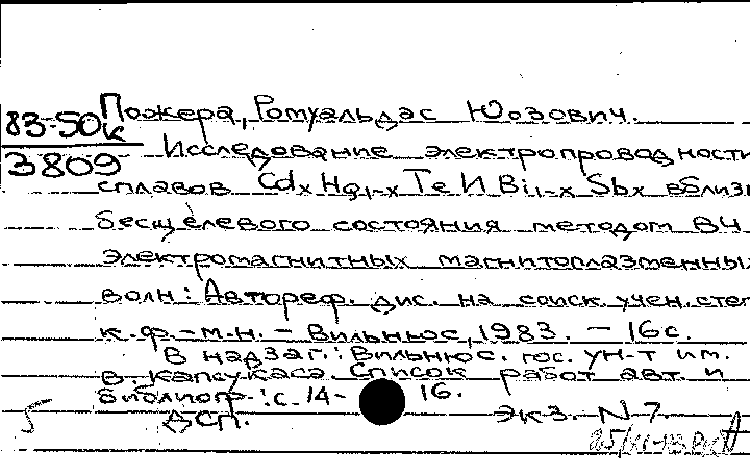 Пожера, Ромуальдас Юозович.
83-50к
3809
Исследование электропроводности
сплавов CdxHg1-xTe и Bi1-xSbx вблизи
бесщелевого состояния методом ВЧ
электромагнитных магнитоплазменны
волн: Автореф. дис. на соиск. учен. степ
к.ф.-м.н. - Вильнюс, 1983. - 16 с.
В надзаг.: Вильнюс. гос. ун-т им.
В. Капсукаса. Список работ авт. и
библиогр.: с. 14-16.
5 ДСП. экз. N 7.